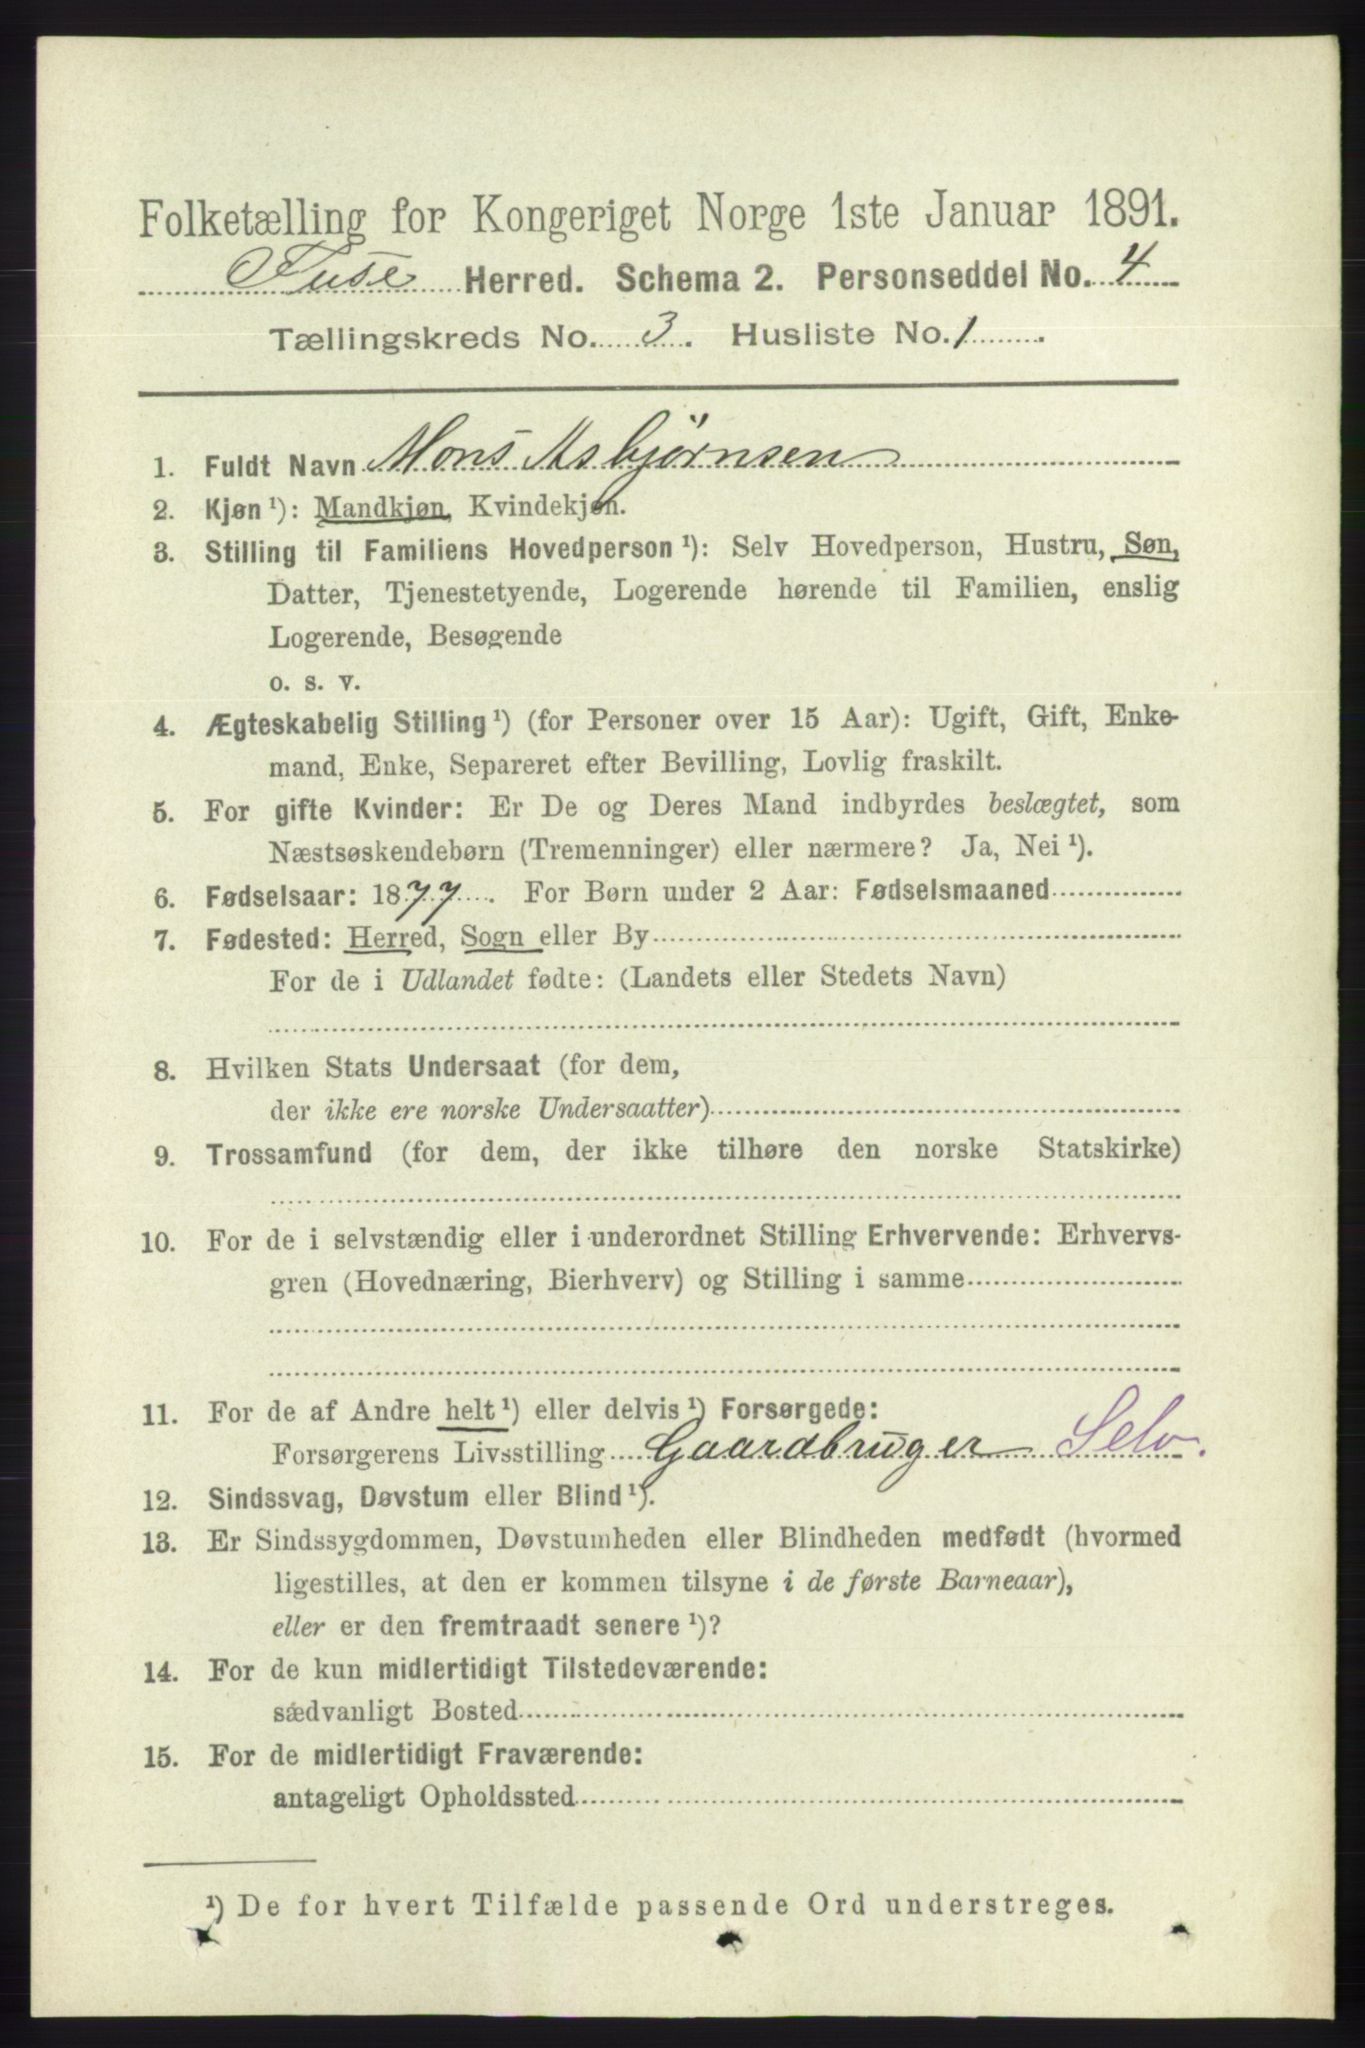 Folketælling for Kongeriget Norge 1ste Januar 1891.
Fuse Herred. Schema 2. Personseddel No. 4
Tællingskreds No. 3. Husliste No. 1.
1. Fuldt Navn Mons Asbjørnsen
2. Kjøn¹): Mandkjøn, Kvindekjøn.
3. Stilling til Familiens Hovedperson¹): Selv Hovedperson, Hustru, Søn,
Datter, Tjenestetyende, Logerende hørende til Familien, enslig
Logerende, Besøgende
o. s. v.
4. Ægteskabelig Stilling¹) (for Personer over 15 Aar): Ugift, Gift, Enke-
mand, Enke, Separeret efter Bevilling, Lovlig fraskilt.
5. For gifte Kvinder: Er De og Deres Mand indbyrdes beslægtet, som
Næstsøskendebørn (Tremenninger) eller nærmere? Ja, Nei¹).
6. Fødselsaar: 1877. For Børn under 2 Aar: Fødselsmaaned
7. Fødested: Herred, Sogn eller By
For de i Udlandet fødte: (Landets eller Stedets Navn)
8. Hvilken Stats Undersaat (for dem,
der ikke ere norske Undersaatter)
9. Trossamfund (for dem, der ikke tilhøre den norske Statskirke)
10. For de i selvstændig eller i underordnet Stilling Erhvervende: Erhvervs-
gren (Hovednæring, Bierhverv) og Stilling i samme
11. For de af Andre helt¹) eller delvis¹) Forsørgede:
Forsørgerens Livsstilling Gaardbruger Selv.
12. Sindssvag, Døvstum eller Blind¹).
13. Er Sindssygdommen, Døvstumheden eller Blindheden medfødt (hvormed
ligestilles, at den er kommen tilsyne i de første Barneaar),
eller er den fremtraadt senere¹)?
14. For de kun midlertidigt Tilstedeværende:
sædvanligt Bosted
15. For de midlertidigt Fraværende:
antageligt Opholdssted
¹) De for hvert Tilfælde passende Ord understreges.